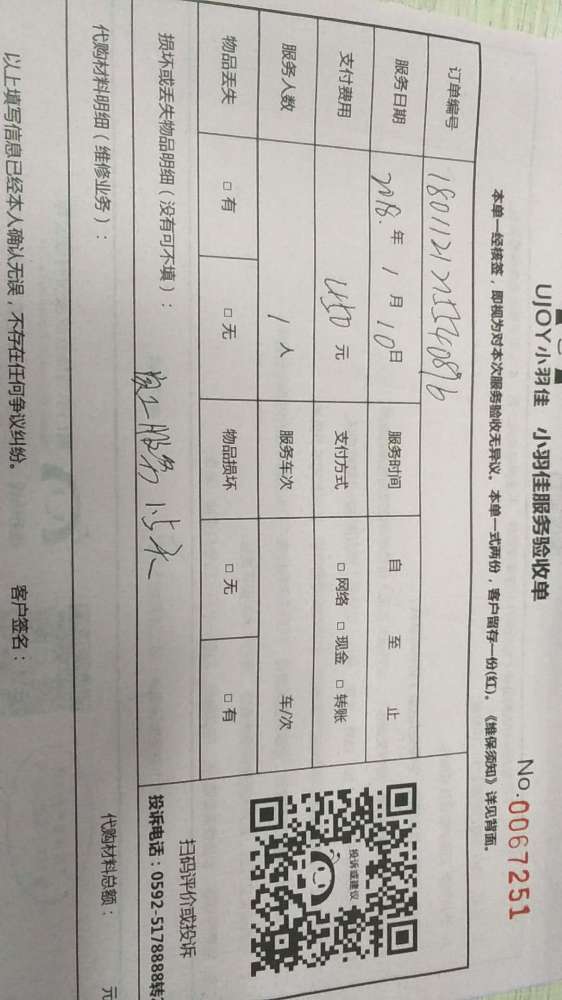 UJOY小羽佳 小羽佳服务验收单
No.0067251
本单一经核签，即视为对本次服务验收无异议。本单一式两份，客户留存一份(红)。《维保须知》详见背面。
订单编号
服务日期 2018.年 1 月 10 日 服务时间 自 至 止
支付费用 450 元 支付方式 □ 网络 □ 现金 □ 转账
服务人数 1 人 服务车次 车/次
物品丢失 □ 有 □ 无 物品损坏 □ 无 □ 有
损坏或丢失物品明细（没有可不填）：
服务 15天
投诉或建议
扫码评价或投诉
投诉电话：0592-5178888转
代购材料明细（维修业务）： 代购材料总额： 元
以上填写信息已经本人确认无误，不存在任何争议纠纷。 客户签名：